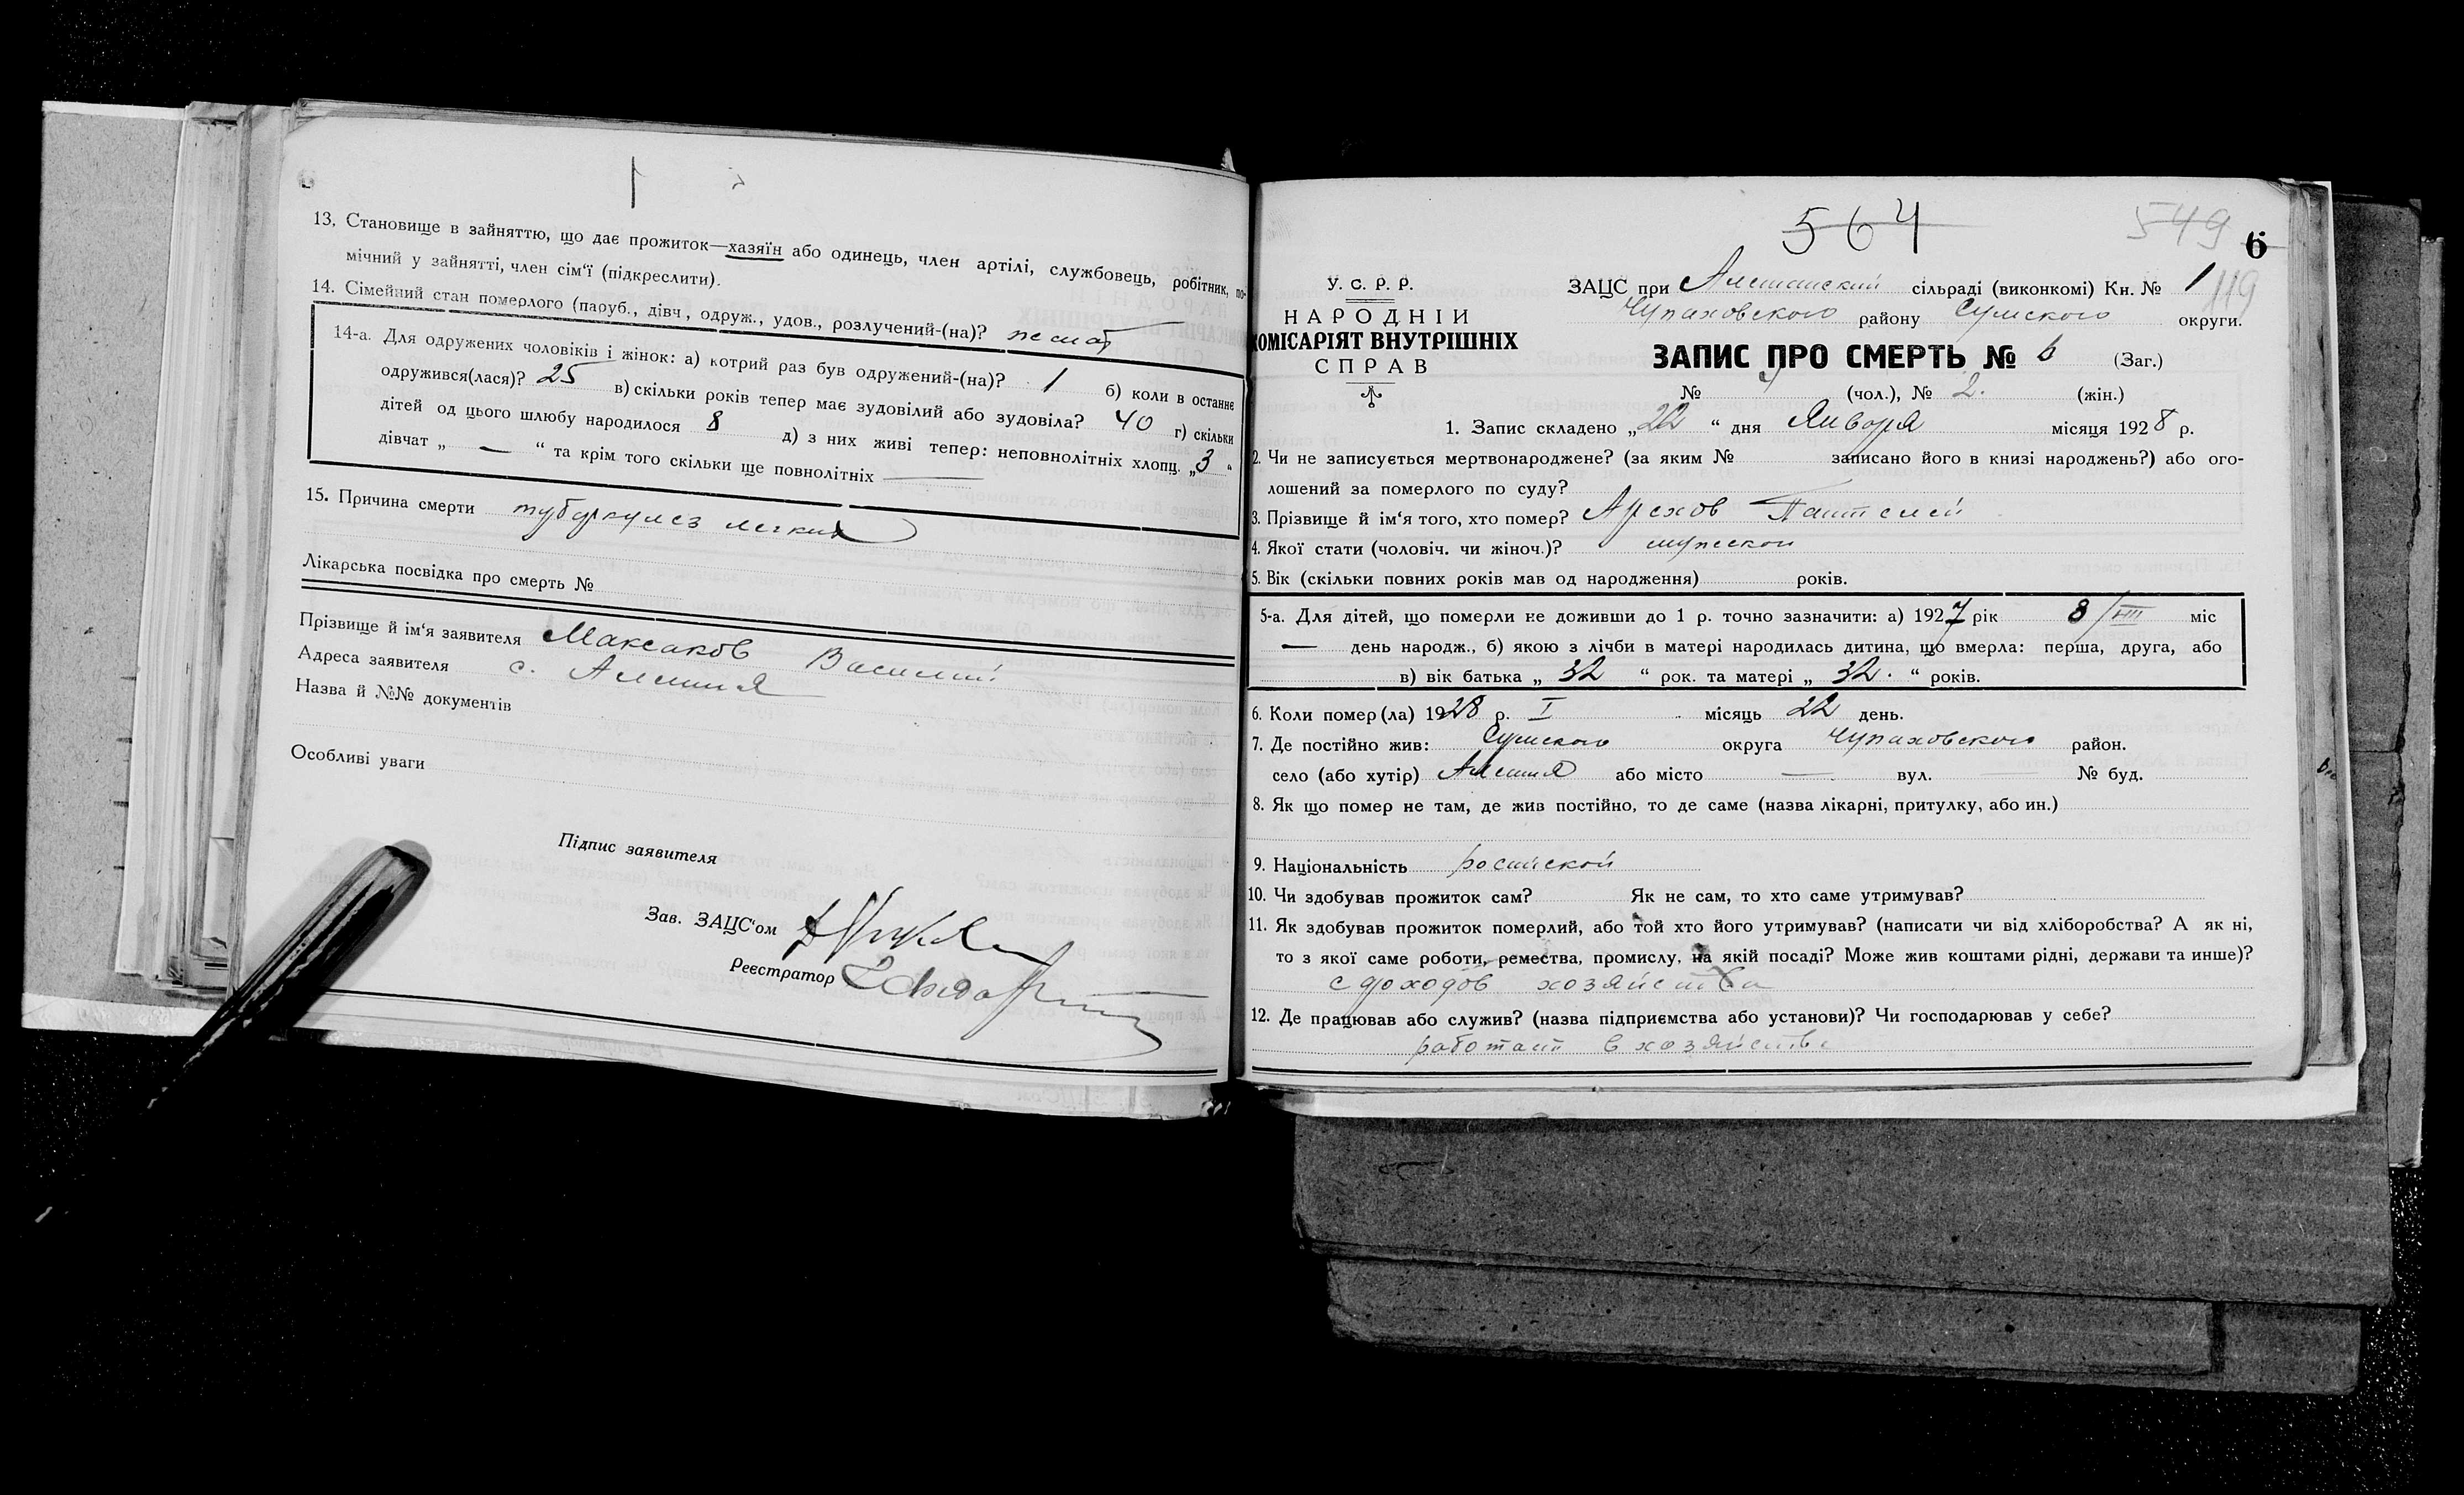 13. Становище в зайняттю, що дає прожиток—хазяїн або одинець, член артілі, службовець, робітник, по-
мічний у зайнятті, член сім'ї (підкреслити).
14. Сімейний стан померлого (паруб., дівч., одруж., удов., розлучений-(на)?
14-а. Для одружених чоловіків і жінок: а) котрий раз був одружений-(на)? 1 б) коли в останнє
одружився(лася)? 25 в) скільки років тепер має зудовілий або зудовіла? 40 г) скільки
дітей од цього шлюбу народилося 8 д) з них живі тепер: неповнолітніх хлопц. „3“
дівчат „—“ та крім того скільки ще повнолітніх —
15. Причина смерти туберкулез легких
Лікарська посвідка про смерть №
Прізвище й ім'я заявителя Максаков Василий
Адреса заявителя с. Алешня
Назва й №№ документів
Особливі уваги
Підпис заявителя
Зав. ЗАЦС'ом
Реєстратор
564 549 6
119
У. С. Р. Р.
НАРОДНІЙ
КОМІСАРІЯТ ВНУТРІШНІХ
СПРАВ
ЗАЦС при Алешанский сільраді (виконкомі) Кн. № 1
Чупаховского району Сумского округи.
ЗАПИС ПРО СМЕРТЬ № 6 (Заг.)
№ (чол.), № 2. (жін.)
1. Запис складено „22“ дня Января місяця 1928 р.
2. Чи не записується мертвонароджене? (за яким № записано його в книзі народжень?) або ого-
лошений за померлого по суду?
3. Прізвище й ім'я того, хто помер? Арехов Пантелей
4. Якої стати (чоловіч. чи жіноч.)? мужской
5. Вік (скільки повних років мав од народження) років.
5-а. Для дітей, що померли не доживши до 1 р. точно зазначити: а) 1927 рік 8/VIII міс
— день народж., б) якою з лічби в матері народилась дитина, що вмерла: перша, друга, або
в) вік батька „32“ рок. та матері „32.“ років.
6. Коли помер(ла) 1928 р. I місяць 22 день.
7. Де постійно жив: Сумского округа Чупаховского район.
село (або хутір) Алешня або місто — вул. — № буд.
8. Як що помер не там, де жив постійно, то де саме (назва лікарні, притулку, або ин.)
9. Національність росийской
10. Чи здобував прожиток сам? Як не сам, то хто саме утримував?
11. Як здобував прожиток померлий, або той хто його утримував? (написати чи від хліборобства? А як ні,
то з якої саме роботи, ремества, промислу, на якій посаді? Може жив коштами рідні, держави та инше)?
с доходов хозяйства
12. Де працював або служив? (назва підприємства або установи)? Чи господарював у себе?
работает в хозяйстве